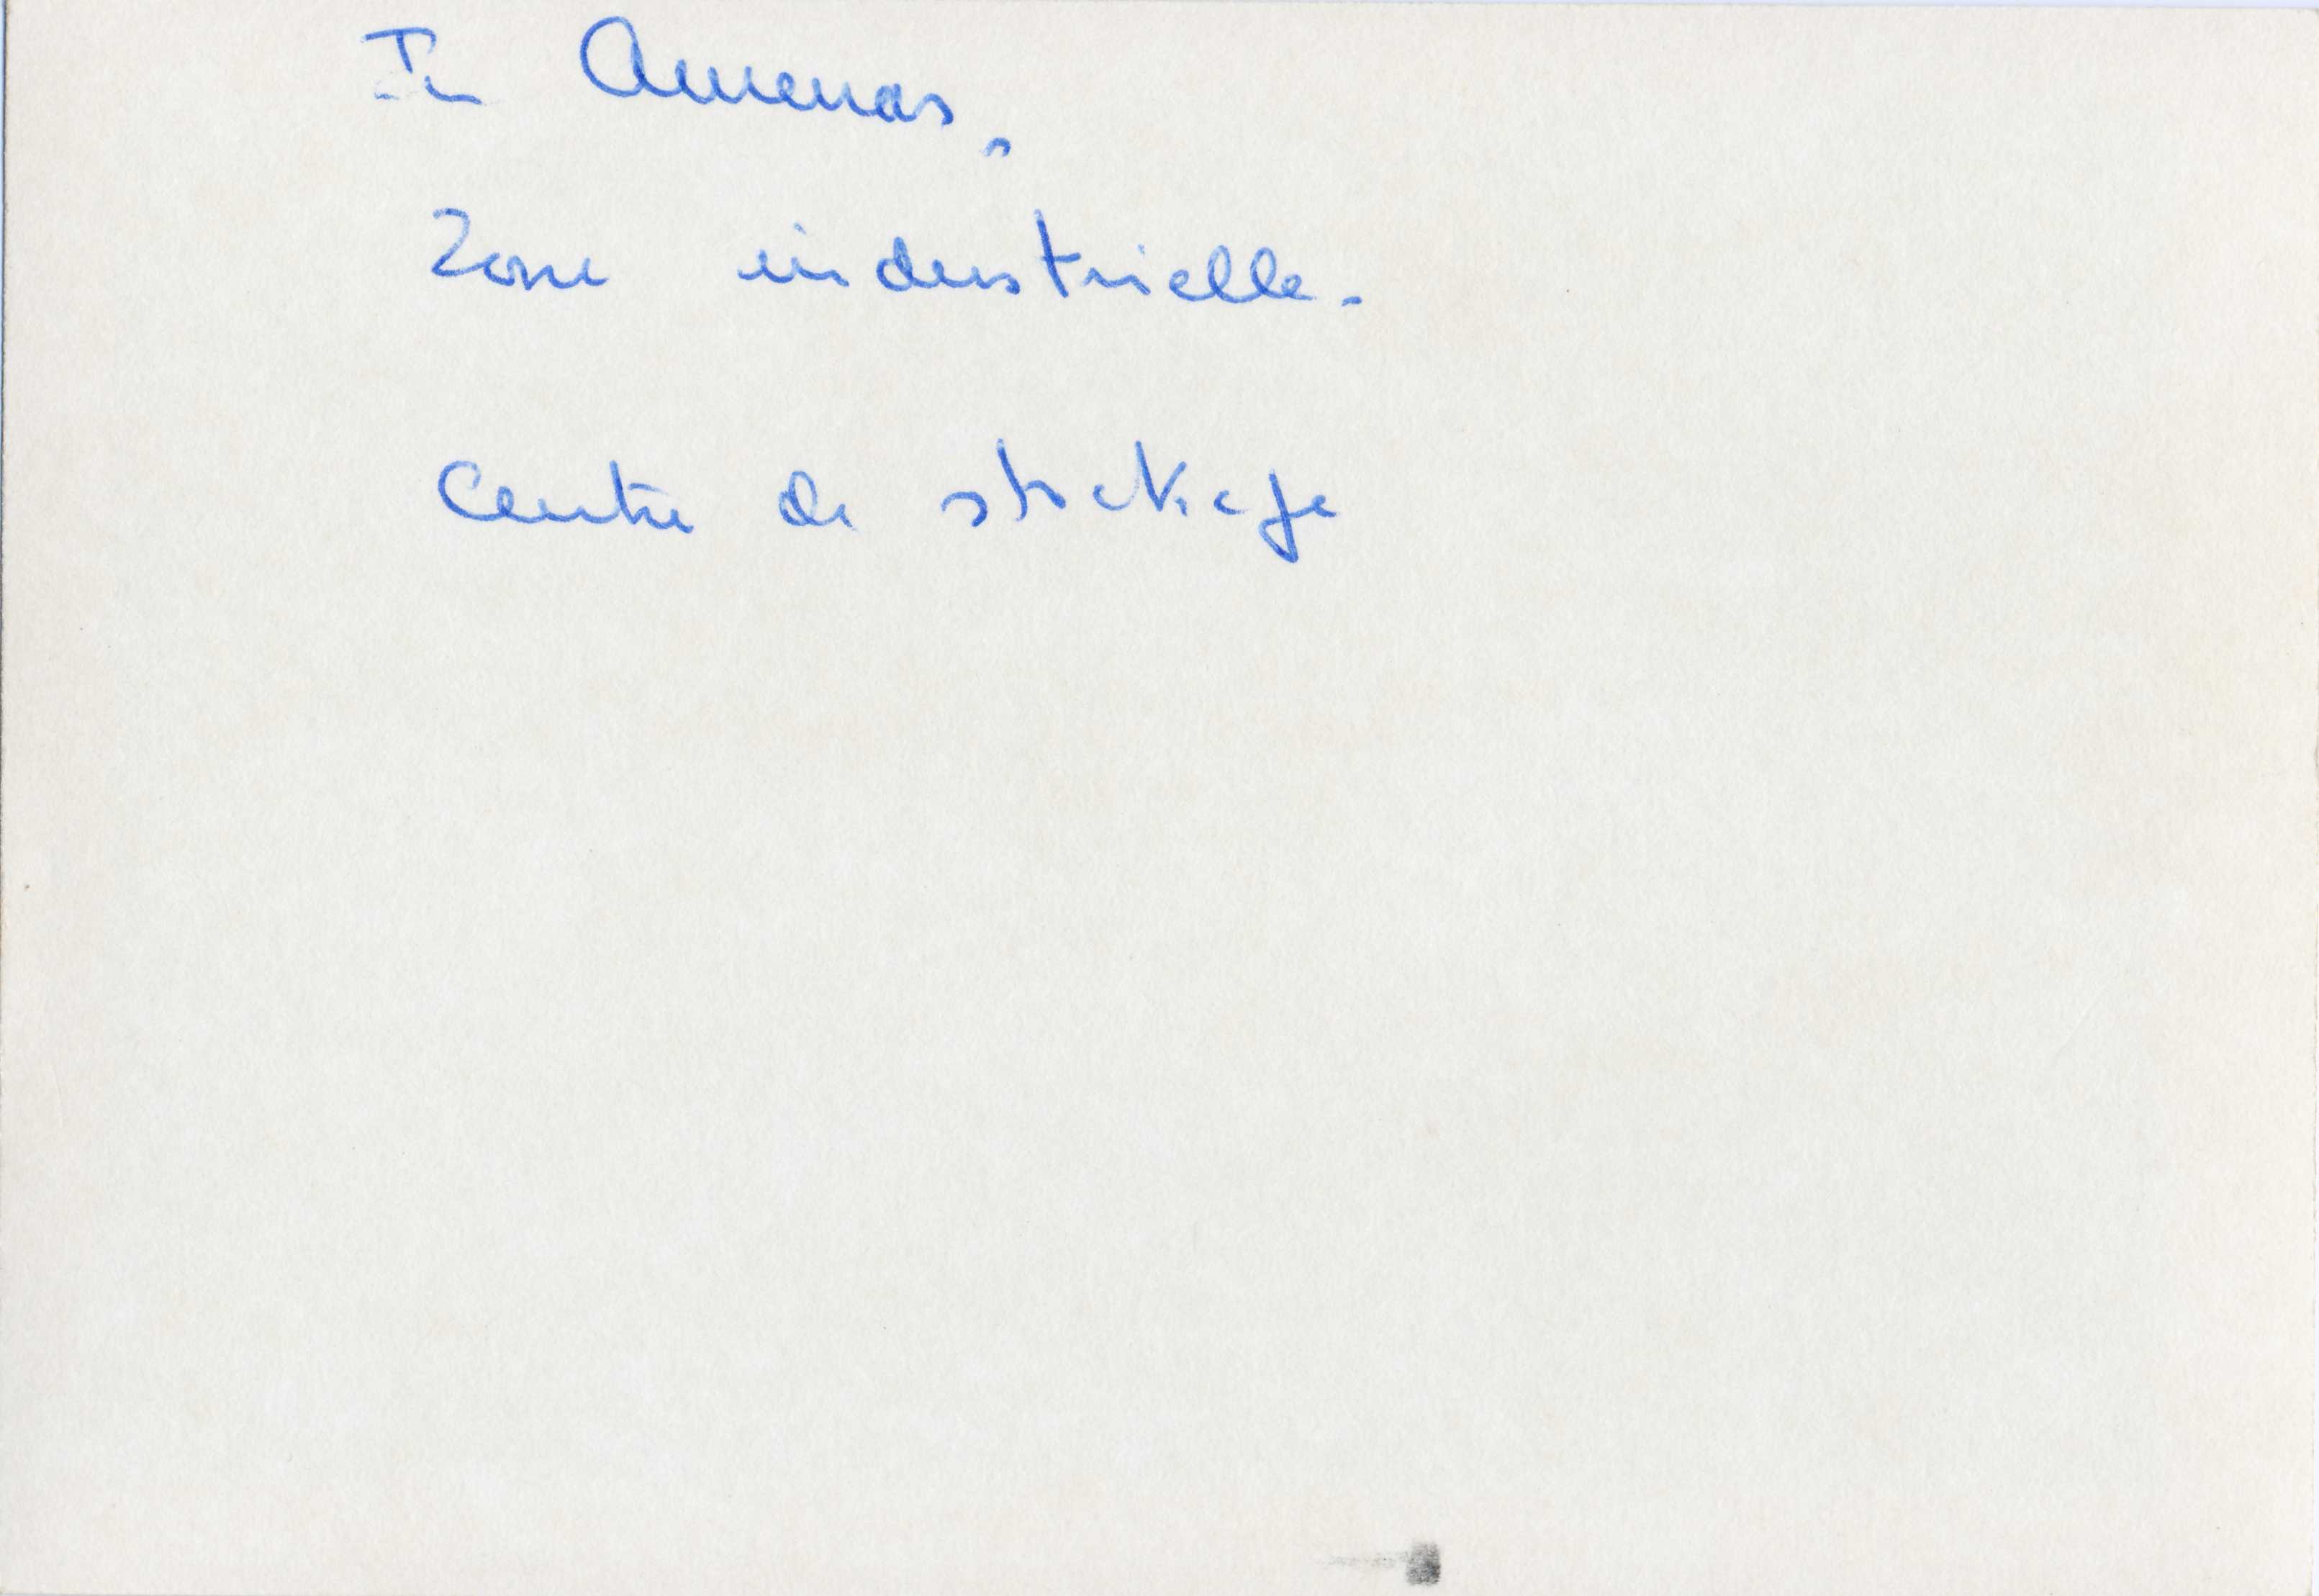 In Amenas.
Zone industrielle.
Centre de stockage